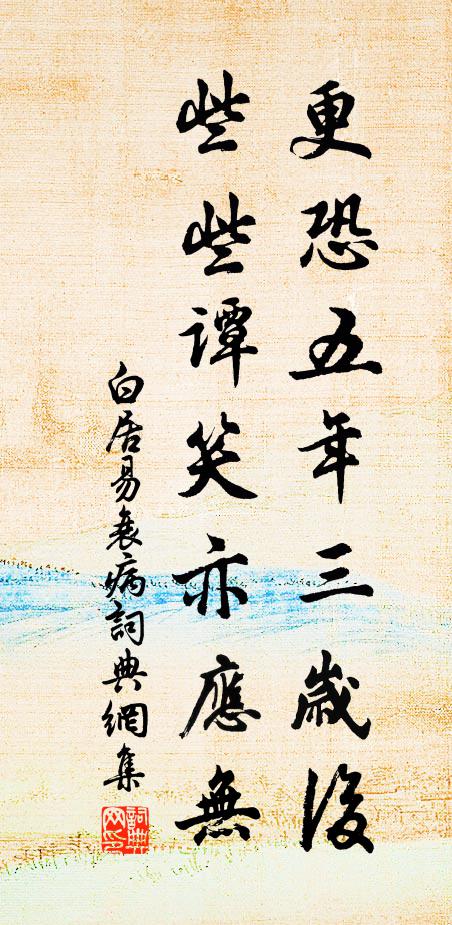 更恐五年三歲後
些些譚笑亦應無
白居易衰病詞典網集
詞典网印